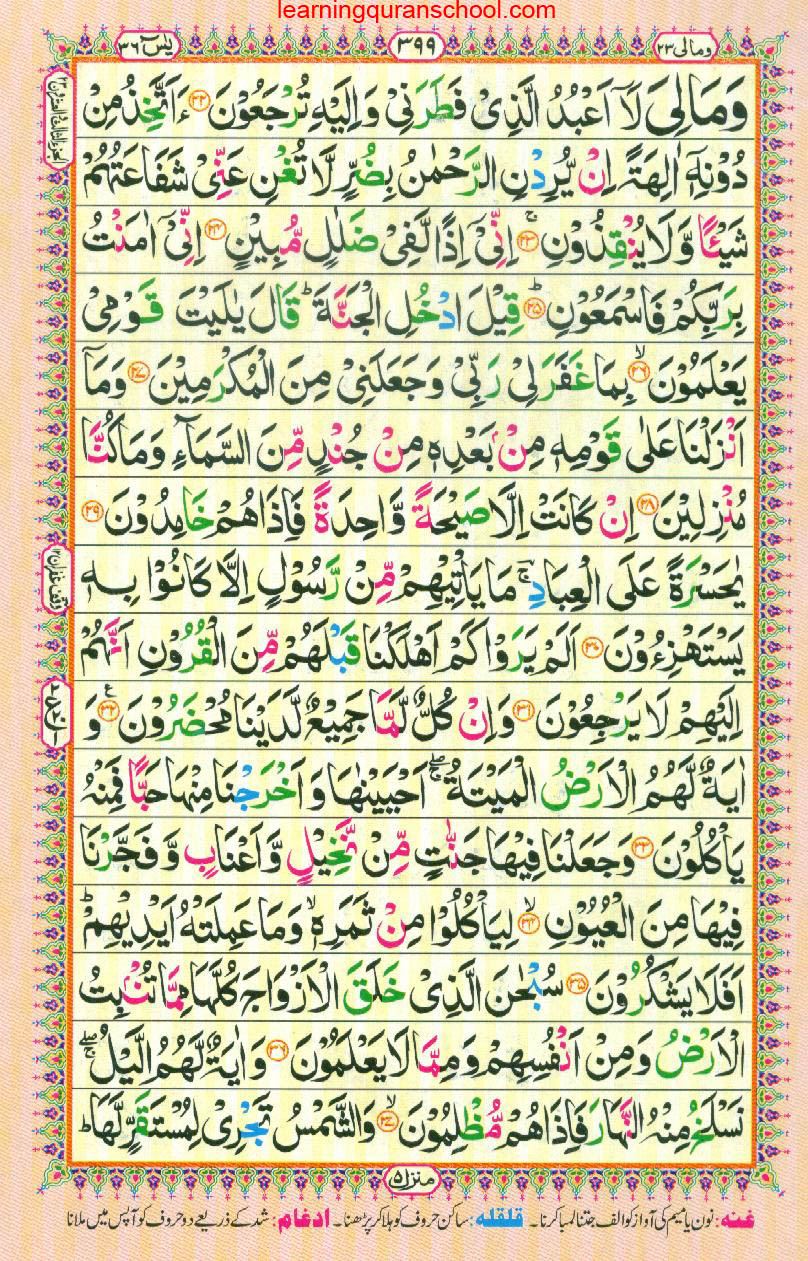 learningquranschool.com
ومالی ۲۳
۳۹۹
یٰسٓ ۳۶
وَمَالِیَ لَاۤ اَعْبُدُ الَّذِیْ فَطَرَنِیْ وَاِلَیْهِ تُرْجَعُوْنَ ﴿۲۲﴾ ءَاَتَّخِذُ مِنْ
دُوْنِهٖۤ اٰلِهَةً اِنْ یُّرِدْنِ الرَّحْمٰنُ بِضُرٍّ لَّا تُغْنِ عَنِّیْ شَفَاعَتُهُمْ
شَیْئًا وَّلَا یُنْقِذُوْنِ ﴿۲۳﴾ۚ اِنِّیْۤ اِذًا لَّفِیْ ضَلٰلٍ مُّبِیْنٍ ﴿۲۴﴾ اِنِّیْۤ اٰمَنْتُ
بِرَبِّكُمْ فَاسْمَعُوْنِ ﴿۲۵﴾ؕ قِیْلَ ادْخُلِ الْجَنَّةَ ؕ قَالَ یٰلَیْتَ قَوْمِیْ
یَعْلَمُوْنَ ﴿۲۶﴾ۙ بِمَا غَفَرَ لِیْ رَبِّیْ وَجَعَلَنِیْ مِنَ الْمُكْرَمِیْنَ ﴿۲۷﴾ وَمَاۤ
اَنْزَلْنَا عَلٰی قَوْمِهٖ مِنْۢ بَعْدِهٖ مِنْ جُنْدٍ مِّنَ السَّمَآءِ وَمَا كُنَّا
مُنْزِلِیْنَ ﴿۲۸﴾ اِنْ كَانَتْ اِلَّا صَیْحَةً وَّاحِدَةً فَاِذَا هُمْ خَامِدُوْنَ ﴿۲۹﴾
یٰحَسْرَةً عَلَی الْعِبَادِ ۚ مَا یَاْتِیْهِمْ مِّنْ رَّسُوْلٍ اِلَّا كَانُوْا بِهٖ
یَسْتَهْزِءُوْنَ ﴿۳۰﴾ اَلَمْ یَرَوْا كَمْ اَهْلَكْنَا قَبْلَهُمْ مِّنَ الْقُرُوْنِ اَنَّهُمْ
اِلَیْهِمْ لَا یَرْجِعُوْنَ ﴿۳۱﴾ وَاِنْ كُلٌّ لَّمَّا جَمِیْعٌ لَّدَیْنَا مُحْضَرُوْنَ ﴿۳۲﴾ وَ
اٰیَةٌ لَّهُمُ الْاَرْضُ الْمَیْتَةُ ۖۚ اَحْیَیْنٰهَا وَاَخْرَجْنَا مِنْهَا حَبًّا فَمِنْهُ
یَاْكُلُوْنَ ﴿۳۳﴾ وَجَعَلْنَا فِیْهَا جَنّٰتٍ مِّنْ نَّخِیْلٍ وَّاَعْنَابٍ وَّفَجَّرْنَا
فِیْهَا مِنَ الْعُیُوْنِ ﴿۳۴﴾ۙ لِیَاْكُلُوْا مِنْ ثَمَرِهٖ ۙ وَمَا عَمِلَتْهُ اَیْدِیْهِمْ ؕ
اَفَلَا یَشْكُرُوْنَ ﴿۳۵﴾ سُبْحٰنَ الَّذِیْ خَلَقَ الْاَزْوَاجَ كُلَّهَا مِمَّا تُنْۢبِتُ
الْاَرْضُ وَمِنْ اَنْفُسِهِمْ وَمِمَّا لَا یَعْلَمُوْنَ ﴿۳۶﴾ وَاٰیَةٌ لَّهُمُ الَّیْلُ ۖۚ
نَسْلَخُ مِنْهُ النَّهَارَ فَاِذَا هُمْ مُّظْلِمُوْنَ ﴿۳۷﴾ۙ وَالشَّمْسُ تَجْرِیْ لِمُسْتَقَرٍّ لَّهَا ؕ
منزل ۵
غنه : نون یا میم کی آواز کو الف جتنا لمبا کرنا۔ قلقله : ساکن حروف کو ہلا کر پڑھنا۔ ادغام : شد کے ذریعے دو حروف کو آپس میں ملانا